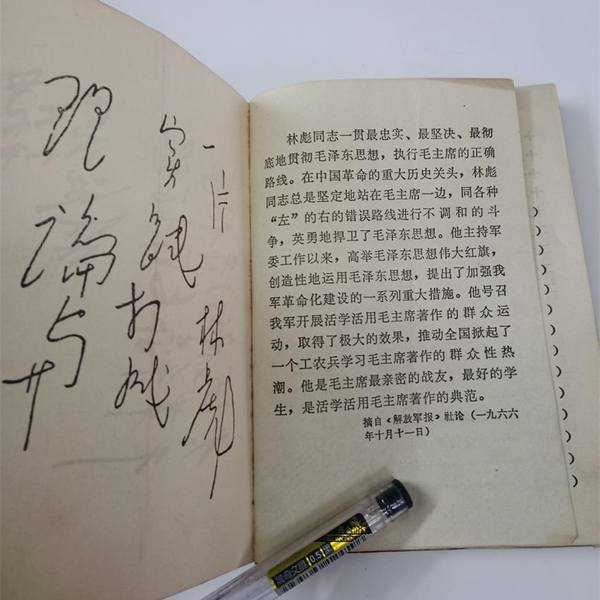 理论与
实践打成
一片
林彪
林彪同志一贯最忠实、最坚决、最彻
底地贯彻毛泽东思想，执行毛主席的正确
路线。在中国革命的重大历史关头，林彪
同志总是坚定地站在毛主席一边，同各种
“左”的右的错误路线进行不调和的斗
争，英勇地捍卫了毛泽东思想。他主持军
委工作以来，高举毛泽东思想伟大红旗，
创造性地运用毛泽东思想，提出了加强我
军革命化建设的一系列重大措施。他号召
我军开展活学活用毛主席著作的群众运
动，取得了极大的效果，推动全国掀起了
一个工农兵学习毛主席著作的群众性热
潮。他是毛主席最亲密的战友，最好的学
生，是活学活用毛主席著作的典范。
摘自《解放军报》社论（一九六六
年十月十一日）
0.5